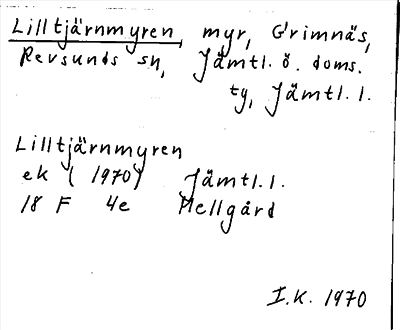 Lilltjärnmyren, myr, Grimnäs,
Revsunds sn, Jämtl. ö. doms.
ty, Jämtl. l.
Lilltjärnmyren
ek (1970) Jämtl. l.
18 F 4e Mellgård
I.K. 1970